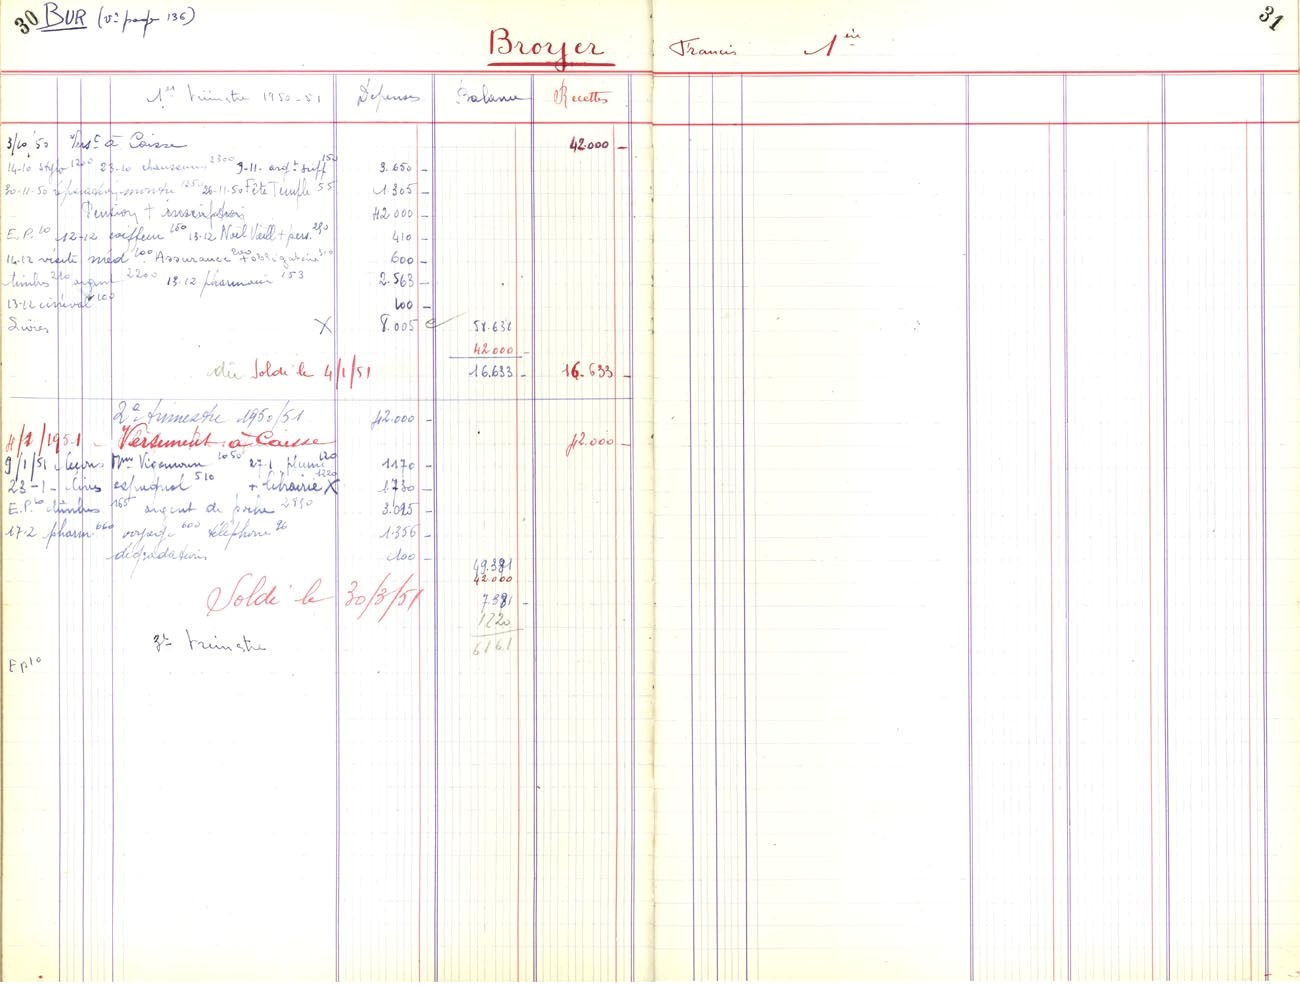 30 BUR (vº page 136)
Broyer Francis 1ère
31
1er trimestre 1950-51 Dépenses Balance Recettes
3/10/50 Verst à Caisse 42.000
14-10 stylo 1200 23-10 chaussures 2300 9-11 argt suppl 150 3.650
30-11-50 réparation montre 1250 26-11-50 Fête Temple 55 1.305
Pension + inscription 42.000
E.P.to 12-12 coiffeur 150 13-12 Noël Vieill + pers. 410
14-12 visite méd 100 Assurance 200 + obligatoire 600
timbres argent 2200 13-12 pharmacie 153 2.563
13-12 cinéma 100 100
Livres X 8.005 58.631
42.000
dû Soldé le 4/1/51 16.633 16.633
2e trimestre 1950/51 42.000
4/1/1951 - Versement à Caisse 42.000
9/1/51 leçons Mme 1050 27-1 plume 120 1170
23-1 - livres espagnol 510 + librairie 1220 X 1730
E.P.to timbres 165 argent de poche 2930 3.095
17-2 pharm. 660 voyage 600 téléphone 96 1.356
dégradations 100
49.381
42.000
Soldé le 30/3/51 7.381
1220
3e trimestre 6161
Epto